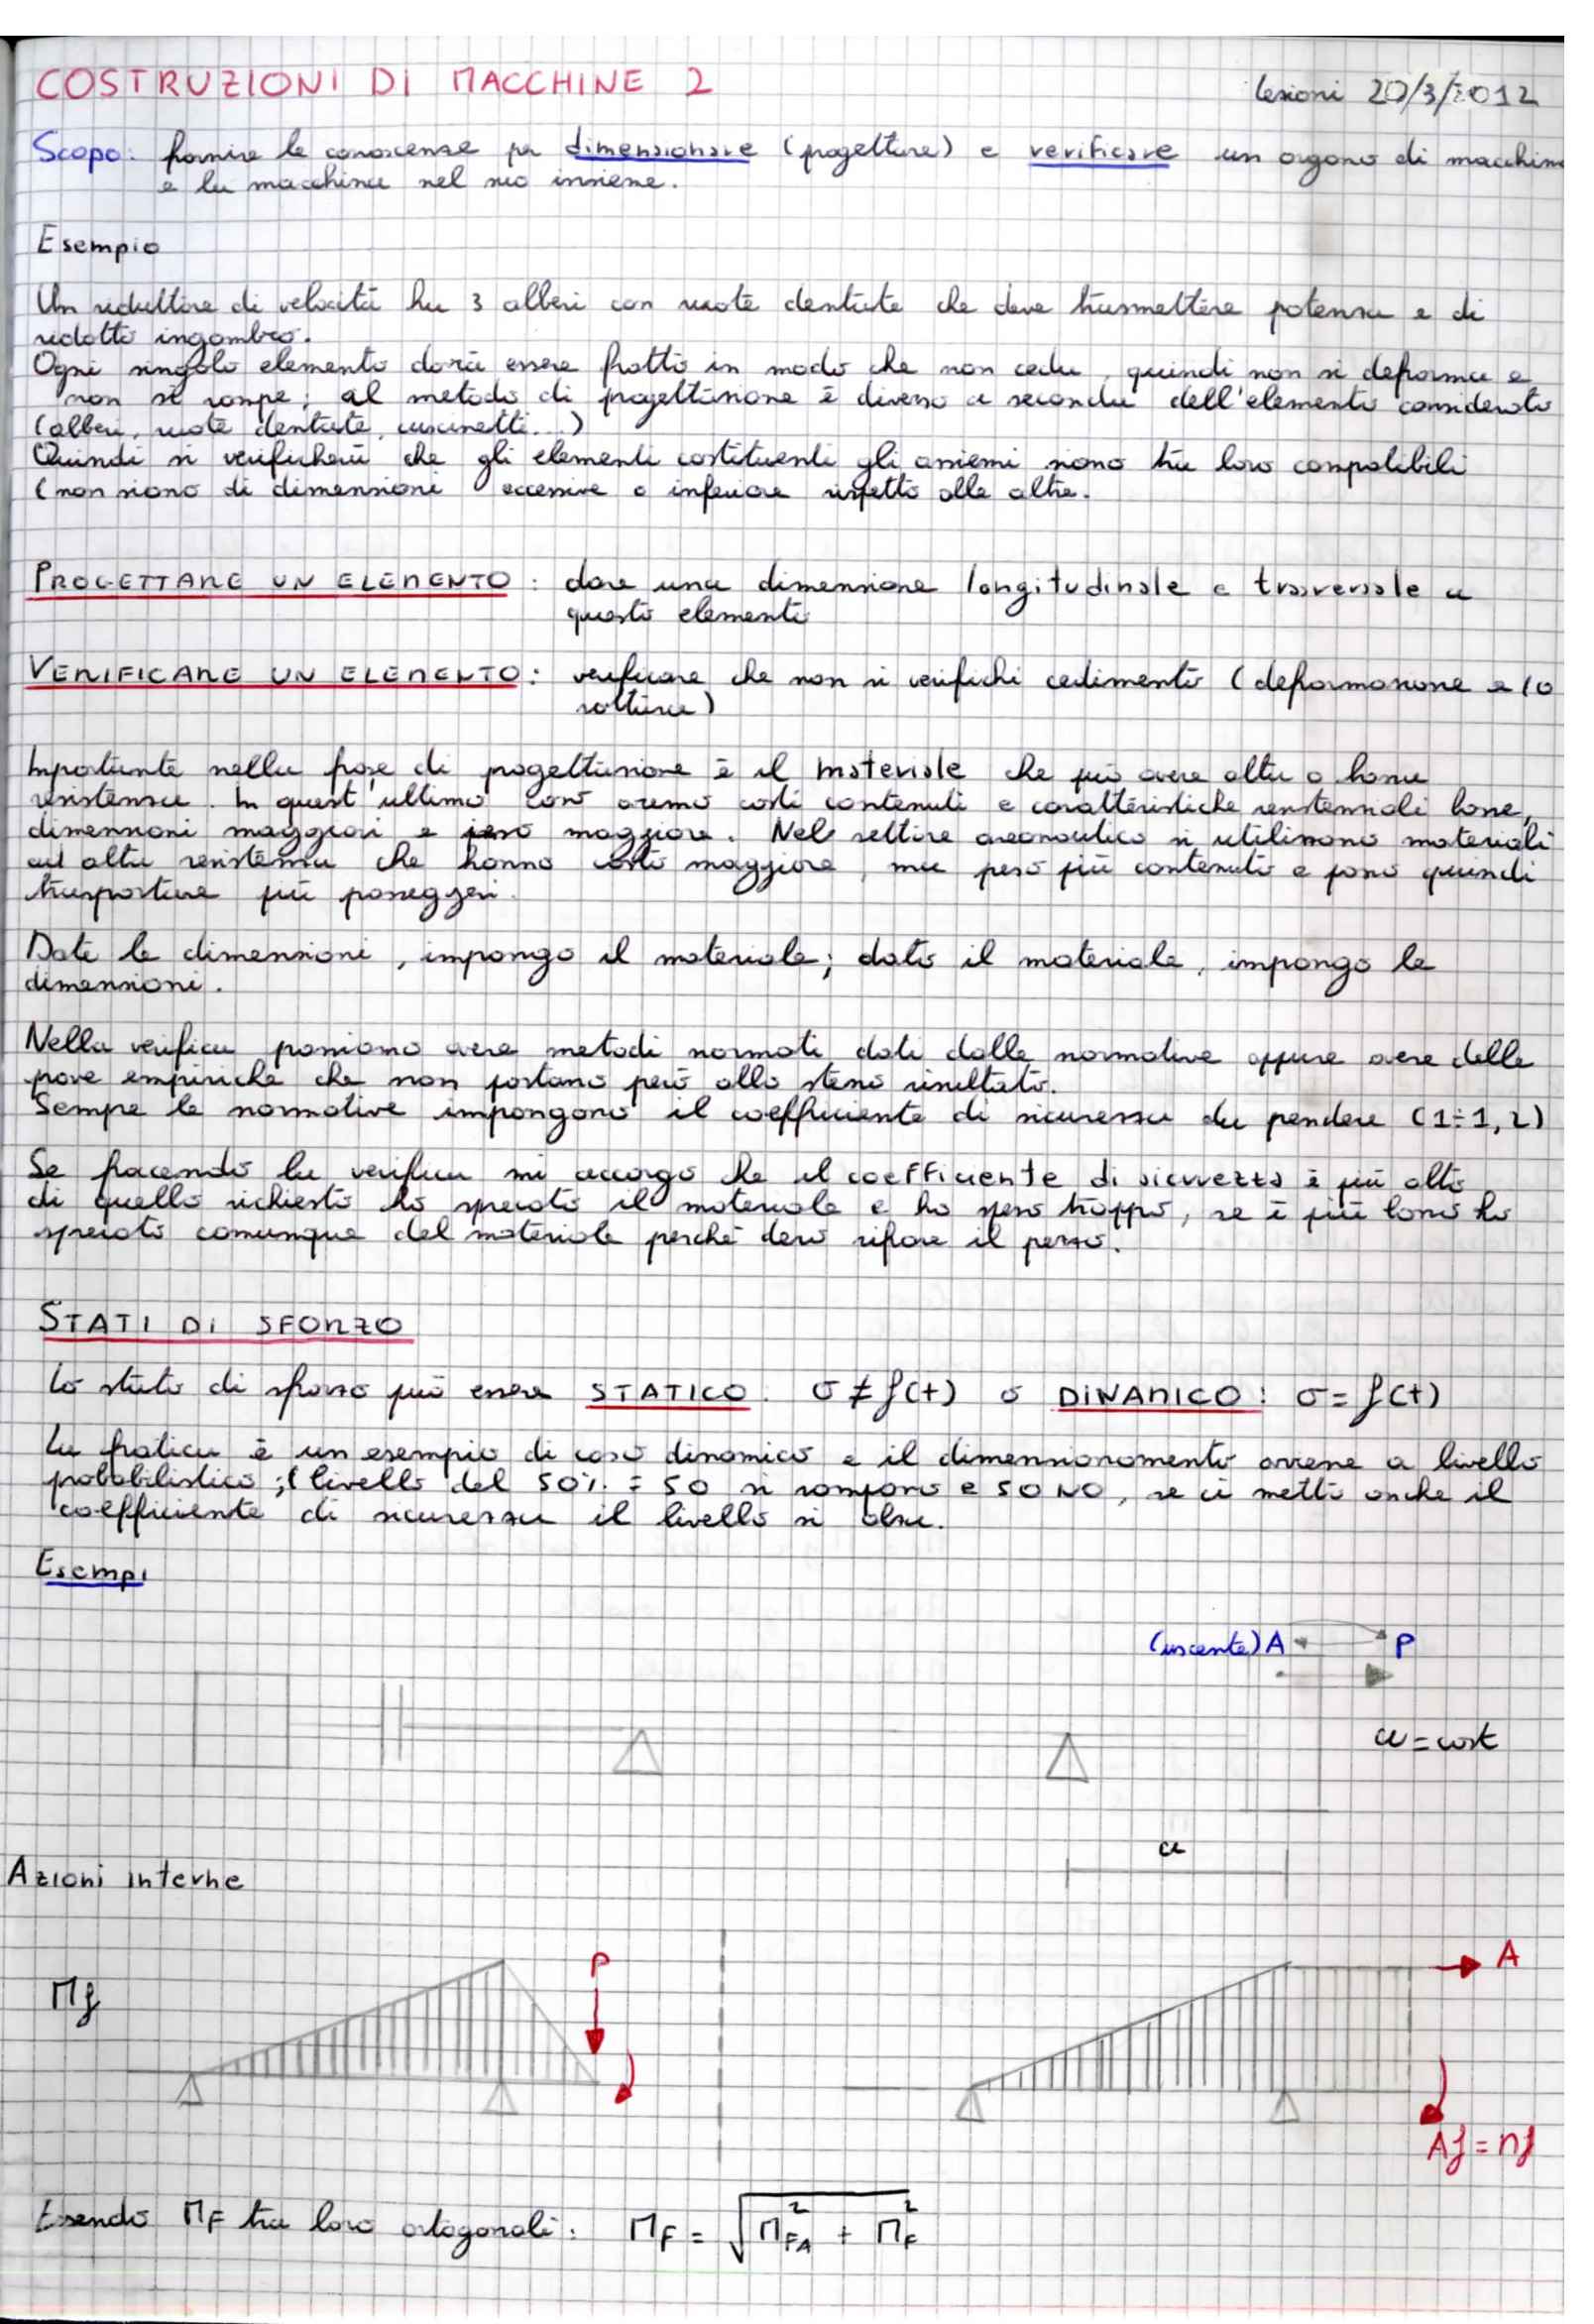 COSTRUZIONI DI MACCHINE 2
lezioni 20/3/2012
Scopo: fornire le conoscenze per dimensionare (progettare) e verificare un organo di macchina
e la macchina nel suo insieme.
Esempio
Un riduttore di velocità ha 3 alberi con ruote dentate che deve trasmettere potenza e di
ridotto ingombro.
Ogni singolo elemento dovrà essere fatto in modo che non ceda, quindi non si deforma e
non si rompe; al metodo di progettazione è diverso a seconda dell'elemento considerato
(alberi, ruote dentate, cuscinetti...)
Quindi si verificherà che gli elementi costituenti gli assiemi siano tra loro compatibili
(non siano di dimensioni eccessive o inferiore rispetto alle altre.
PROGETTARE UN ELEMENTO: dare una dimensione longitudinale e trasversale a
questo elemento
VERIFICARE UN ELEMENTO: verificare che non si verifichi cedimento (deformazione e/o
rottura)
Importante nella fase di progettazione è il materiale che può avere alta o bassa
resistenza. In quest'ultimo caso avremo costi contenuti e caratteristiche resistenziali basse,
dimensioni maggiori e peso maggiore. Nel settore areonautico si utilizzano materiali
ad alta resistenza che hanno costo maggiore, ma peso più contenuto e posso quindi
trasportare più passeggeri.
Date le dimensioni, impongo il materiale; dato il materiale, impongo le
dimensioni.
Nella verifica possiamo avere metodi normati dati dalle normative oppure avere delle
prove empiriche che non portano però allo stesso risultato.
Sempre le normative impongono il coefficiente di sicurezza da prendere (1÷1,2)
Se facendo la verifica mi accorgo che il coefficiente di sicurezza è più alto
di quello richiesto ho sprecato il materiale e ho speso troppo, se è più basso ho
sprecato comunque del materiale perché devo rifare il pezzo.
STATI DI SFORZO
Lo stato di sforzo può essere STATICO: σ ≠ f(t) o DINAMICO: σ = f(t)
La fatica è un esempio di caso dinamico e il dimensionamento avviene a livello
probabilistico; (livello del 50% = 50 si rompono e 50 NO, se ci metto anche il
coefficiente di sicurezza il livello si alza.
Esempi
(uscente) A P
a = cost
a
Azioni interne
Mf
P
A
Af = Mf
Essendo MF tra loro ortogonali: MF = √(MFA² + MF²)